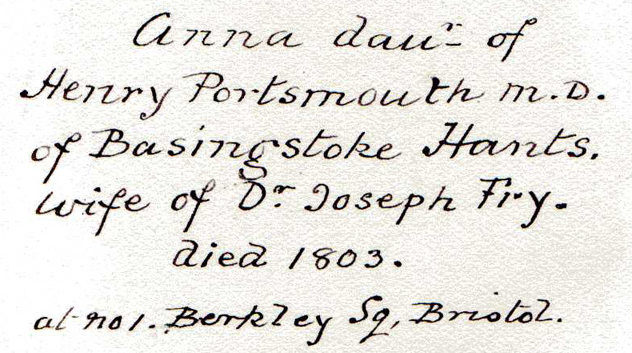 Anna daur of
Henry Portsmouth M.D.
of Basingstoke Hants.
wife of Dr Joseph Fry.
died 1803.
at no 1. Berkley Sq, Bristol.